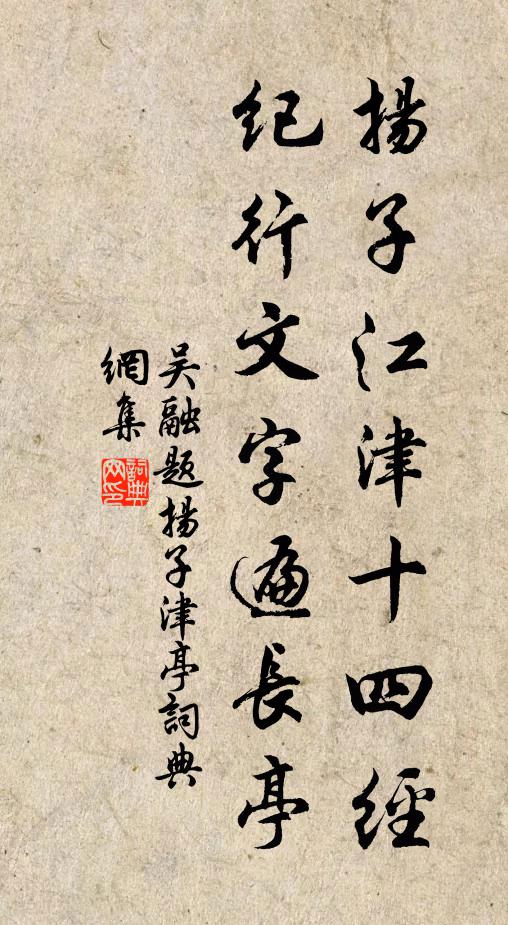 揚子江津十四經
紀行文字遍長亭
吴融题揚子津亭詞典
網集
詞典
网印